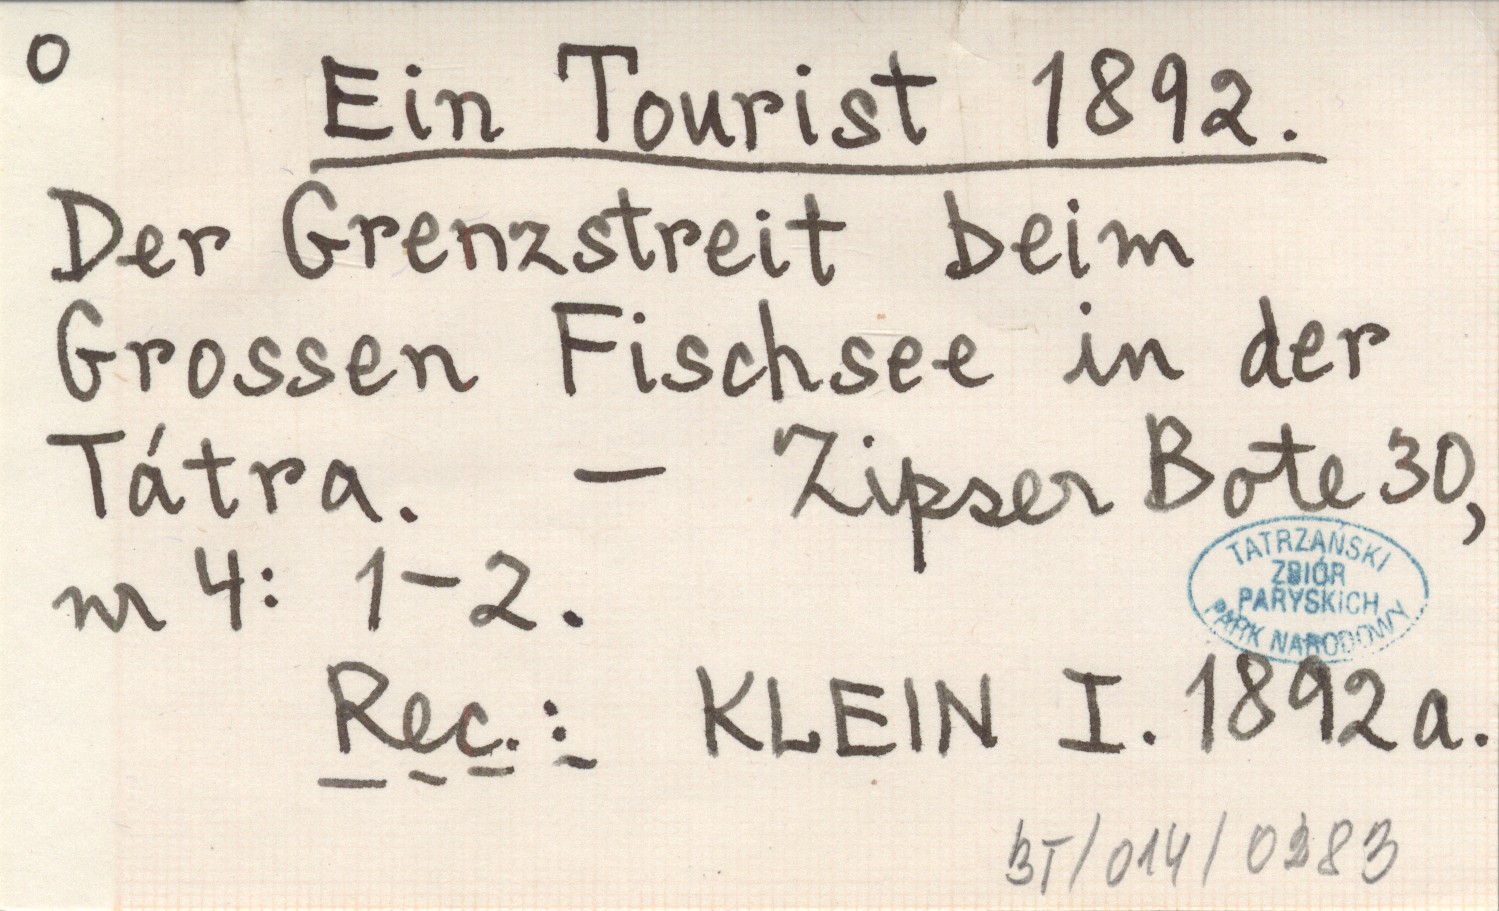 O
Ein Tourist 1892.
Der Grenzstreit beim
Grossen Fischsee in der
Tátra. — Zipser Bote 30,
nr 4: 1-2.
TATRZAŃSKI
ZBIÓR
PARYSKICH
PARK NARODOWY
Rec.: KLEIN I. 1892a.
BT/014/0283